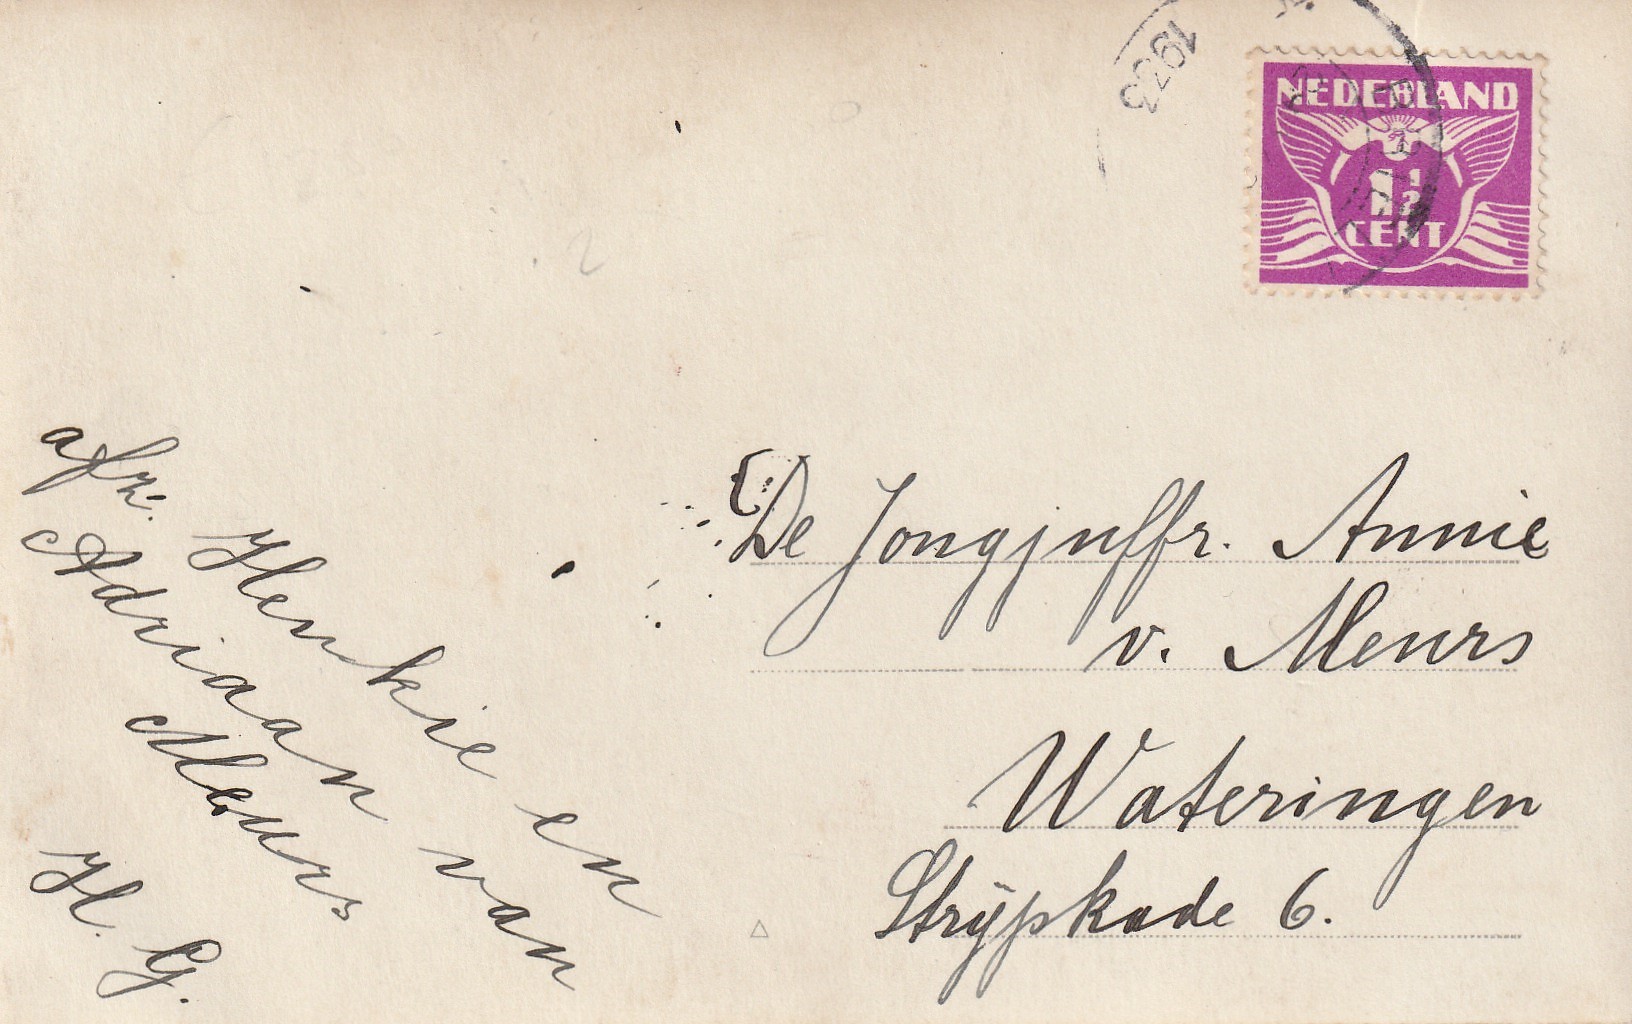 1933
NEDERLAND
1½
CENT
afz. Henkie en
Adriaan van
Meurs
H. G.
De Jongjuffr. Annie
v. Meurs
Wateringen
Strijpkade 6.